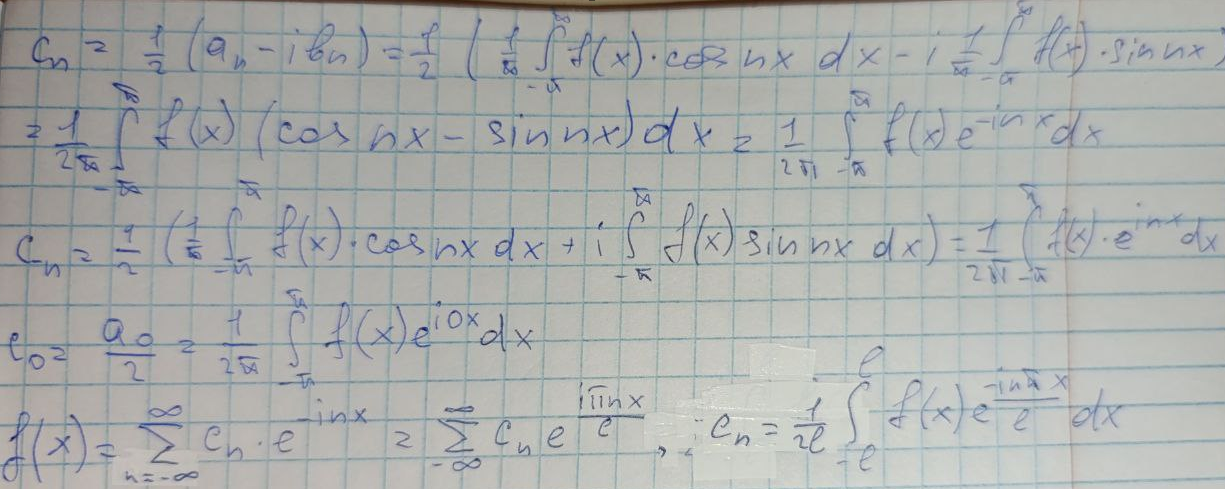 cₙ = 1/2 (aₙ - ibₙ) = 1/2 (1/π ∫_{-π}^{π} f(x)·cos nx dx - i 1/π ∫_{-π}^{π} f(x)·sin nx)
= 1/2π ∫_{-π}^{π} f(x) (cos nx - sin nx) dx = 1/2π ∫_{-π}^{π} f(x) e^{-inx} dx
cₙ = 1/2 (1/π ∫_{-π}^{π} f(x)·cos nx dx + i ∫_{-π}^{π} f(x) sin nx dx) = 1/2π ∫_{-π}^{π} f(x)·e^{inx} dx
c₀ = a₀/2 = 1/2π ∫_{-π}^{π} f(x) e^{i0x} dx
f(x) = ∑_{n=-∞}^{∞} cₙ·e^{-inx} = ∑_{-∞}^{∞} cₙ e^{iπnx/ℓ}, cₙ = 1/2ℓ ∫_{-ℓ}^{ℓ} f(x) e^{-inπx/ℓ} dx